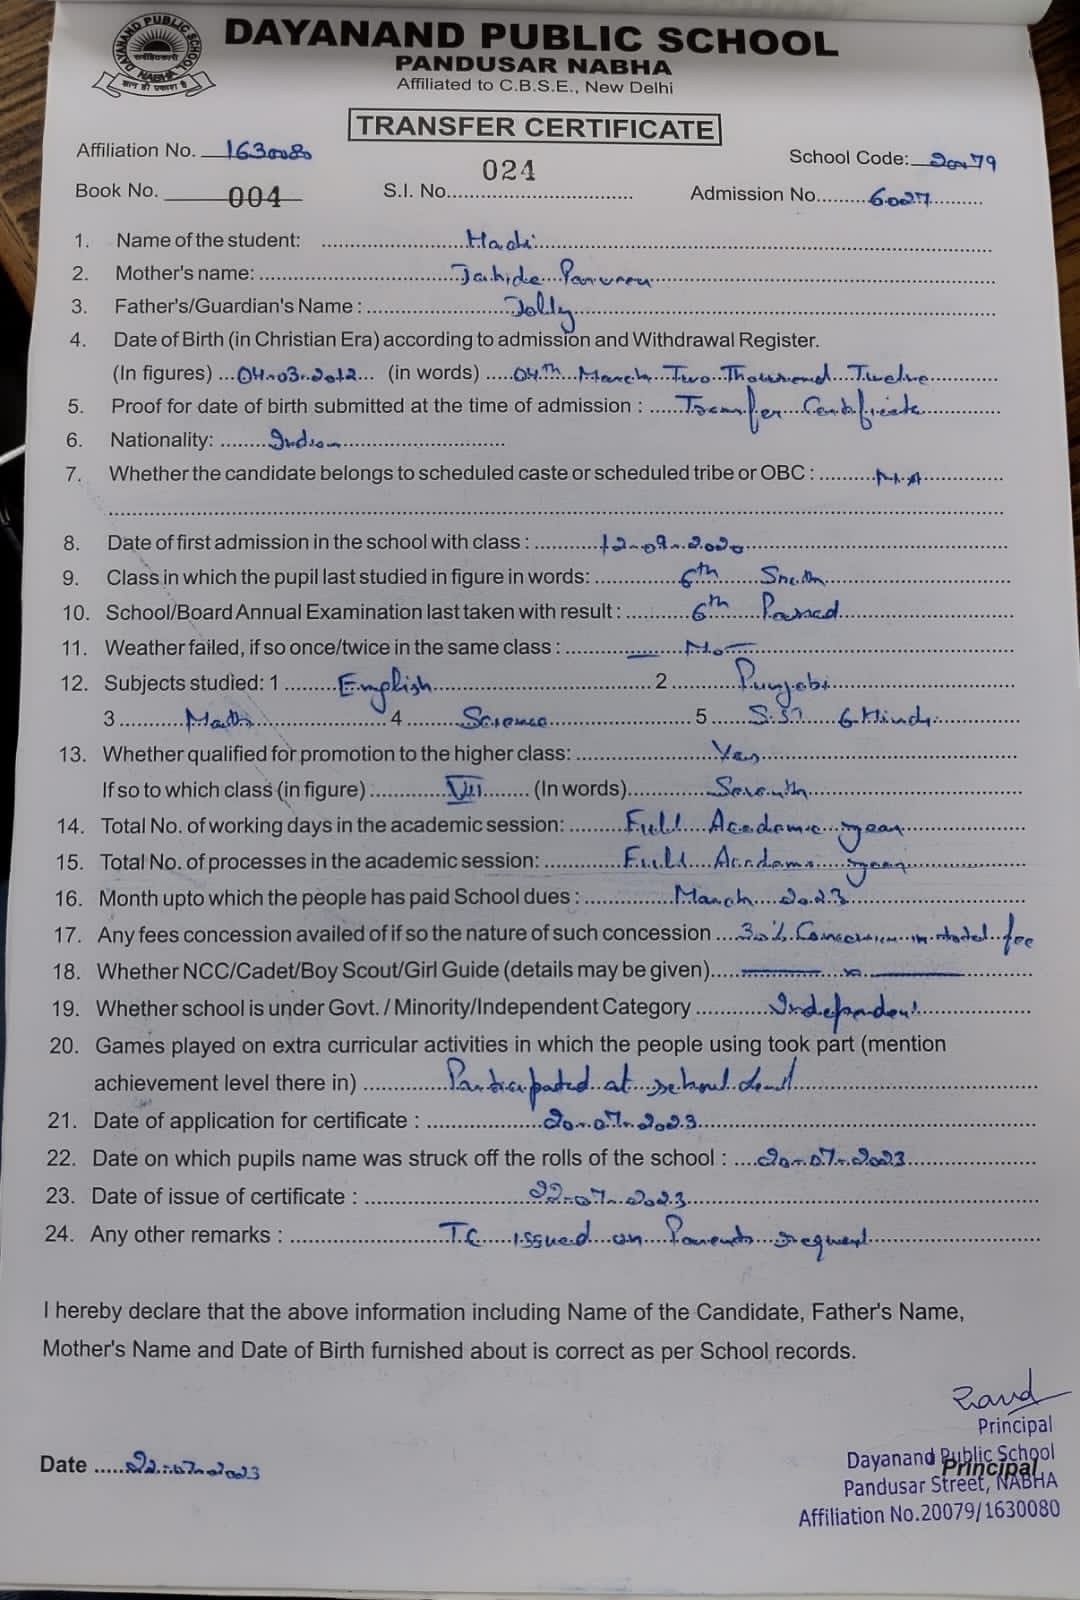 DAYANAND PUBLIC SCHOOL
PANDUSAR NABHA
Affiliated to C.B.S.E., New Delhi
DAYANAND PUBLIC SCHOOL
NABHA
TRANSFER CERTIFICATE
Affiliation No. 1630080
024
School Code: 20079
Book No. 004 S.I. No. Admission No. 6027
1. Name of the student: Hadi
2. Mother's name: Jahida Parveen
3. Father's/Guardian's Name : Jolly
4. Date of Birth (in Christian Era) according to admission and Withdrawal Register.
(In figures) 04-03-2012 (in words) 04th March Two Thousand Twelve
5. Proof for date of birth submitted at the time of admission : Transfer Certificate
6. Nationality: Indian
7. Whether the candidate belongs to scheduled caste or scheduled tribe or OBC : N.A
8. Date of first admission in the school with class : 12-09-2020
9. Class in which the pupil last studied in figure in words: 6th Sixth
10. School/Board Annual Examination last taken with result : 6th Passed
11. Weather failed, if so once/twice in the same class : No
12. Subjects studied: 1 English 2 Punjabi
3 Math 4 Science 5 S.ST & Hindi
13. Whether qualified for promotion to the higher class: Yes
If so to which class (in figure) VII (In words) Seventh
14. Total No. of working days in the academic session: Full Academic year
15. Total No. of processes in the academic session: Full Academic year
16. Month upto which the people has paid School dues : March 2023
17. Any fees concession availed of if so the nature of such concession 30% Concession in total fee
18. Whether NCC/Cadet/Boy Scout/Girl Guide (details may be given)
19. Whether school is under Govt. / Minority/Independent Category Independent
20. Games played on extra curricular activities in which the people using took part (mention
achievement level there in) Participated at school level
21. Date of application for certificate : 20-07-2023
22. Date on which pupils name was struck off the rolls of the school : 20-07-2023
23. Date of issue of certificate : 22-07-2023
24. Any other remarks : T.C issued on Parents request
I hereby declare that the above information including Name of the Candidate, Father's Name,
Mother's Name and Date of Birth furnished about is correct as per School records.
Principal
Date 22-07-2023
Dayanand Public School
Principal
Pandusar Street, NABHA
Affiliation No.20079/1630080